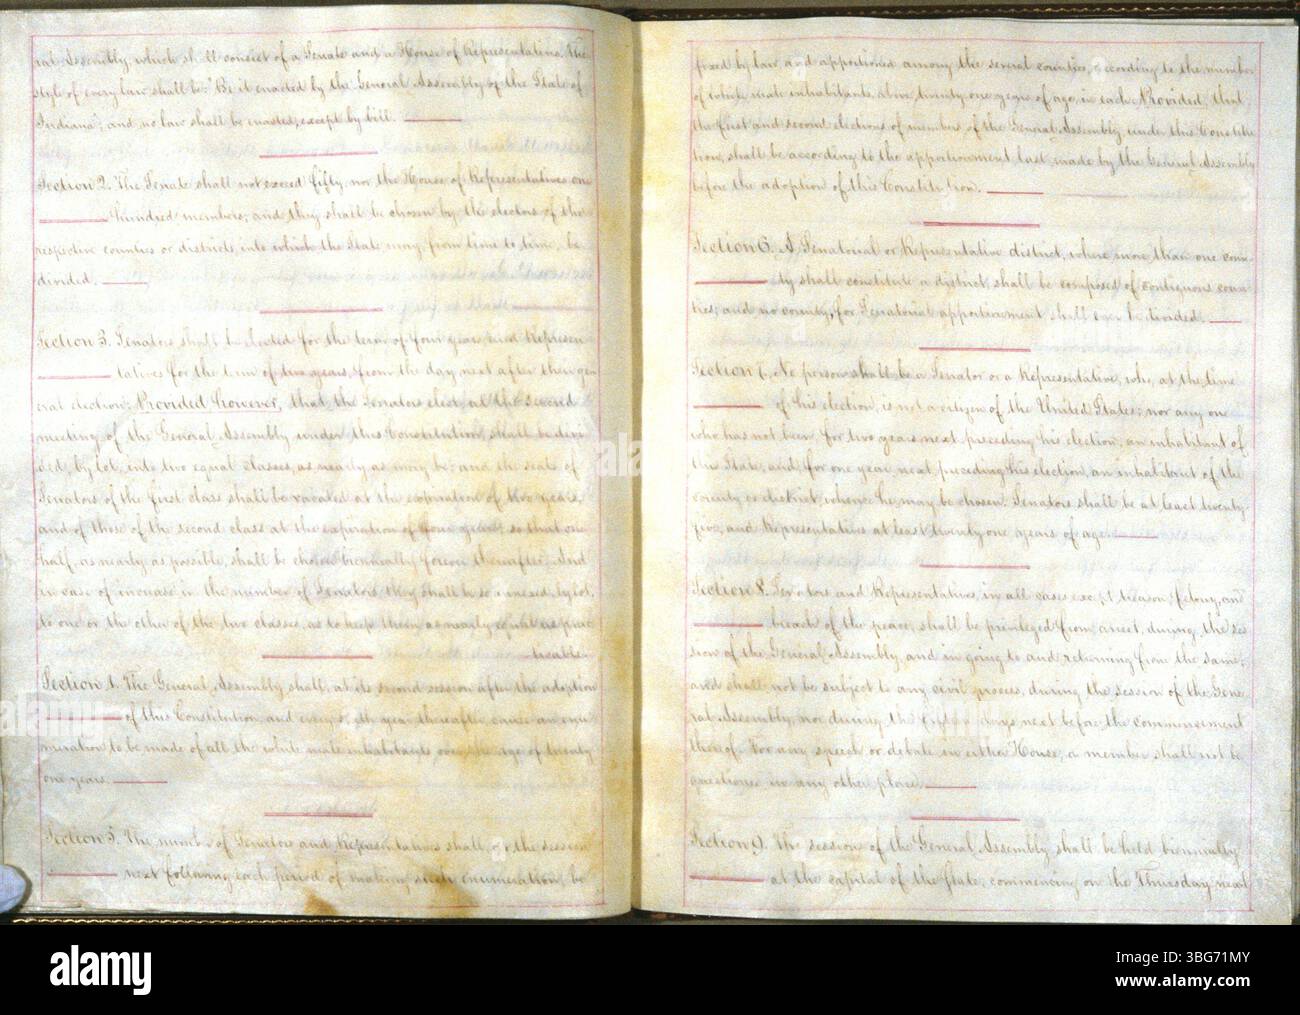 ral Assembly, which shall consist of a Senate and a House of Representatives. The
style of every law shall be: "Be it enacted by the General Assembly of the State of
Indiana"; and no law shall be enacted, except by bill.
Section 2. The Senate shall not exceed fifty, nor the House of Representatives one
hundred members; and they shall be chosen by the electors of the
respective counties or districts, into which the State may, from time to time, be
divided.
Section 3. Senators shall be elected for the term of four years, and Represen-
tatives for the term of two years, from the day next after their gen-
eral election; Provided however, that the Senators elect, at the second
meeting of the General Assembly under this Constitution, shall be divi-
ded, by lot, into two equal classes, as nearly as may be; and the seats of
Senators of the first class shall be vacated at the expiration of two years,
and of those of the second class at the expiration of four years; so that one
half, as nearly as possible, shall be chosen biennially forever thereafter. And
in case of increase in the number of Senators, they shall be so annexed, by lot,
to one or the other of the two classes, as to keep them as nearly equal as prac-
ticable.
Section 4. The General Assembly shall, at its second session after the adoption
of this Constitution, and every sixth year thereafter, cause an enu-
meration to be made of all the white male inhabitants over the age of twenty
one years.
Section 5. The number of Senators and Representatives shall, at the session
next following each period of making such enumeration, be
fixed by law, and apportioned among the several counties, according to the number
of white male inhabitants, above twenty one years of age, in each: Provided, that
the first and second elections of members of the General Assembly, under this Constitu-
tion, shall be according to the apportionment last made by the General Assembly
before the adoption of this Constitution.
Section 6. A Senatorial or Representative district, where more than one coun-
ty shall constitute a district, shall be composed of contiguous coun-
ties; and no county, for Senatorial apportionment shall ever be divided.
Section 7. No person shall be a Senator or a Representative, who, at the time
of his election, is not a citizen of the United States; nor any one
who has not been, for two years next preceding his election, an inhabitant of
this State, and, for one year next preceding his election, an inhabitant of the
county or district, whence he may be chosen. Senators shall be at least twenty-
five, and Representatives at least twenty one years of age.
Section 8. Senators and Representatives, in all cases except treason, felony, and
breach of the peace, shall be privileged from arrest, during the ses-
sion of the General Assembly, and in going to and returning from the same;
and shall not be subject to any civil process, during the session of the Gene-
ral Assembly, nor during the fifteen days next before the commencement
thereof. For any speech or debate in either House, a member shall not be
questioned in any other place.
Section 9. The sessions of the General Assembly shall be held biennially
at the capital of the State, commencing on the Thursday next
alamy
alamy
Image ID: 3BG71MY
www.alamy.com